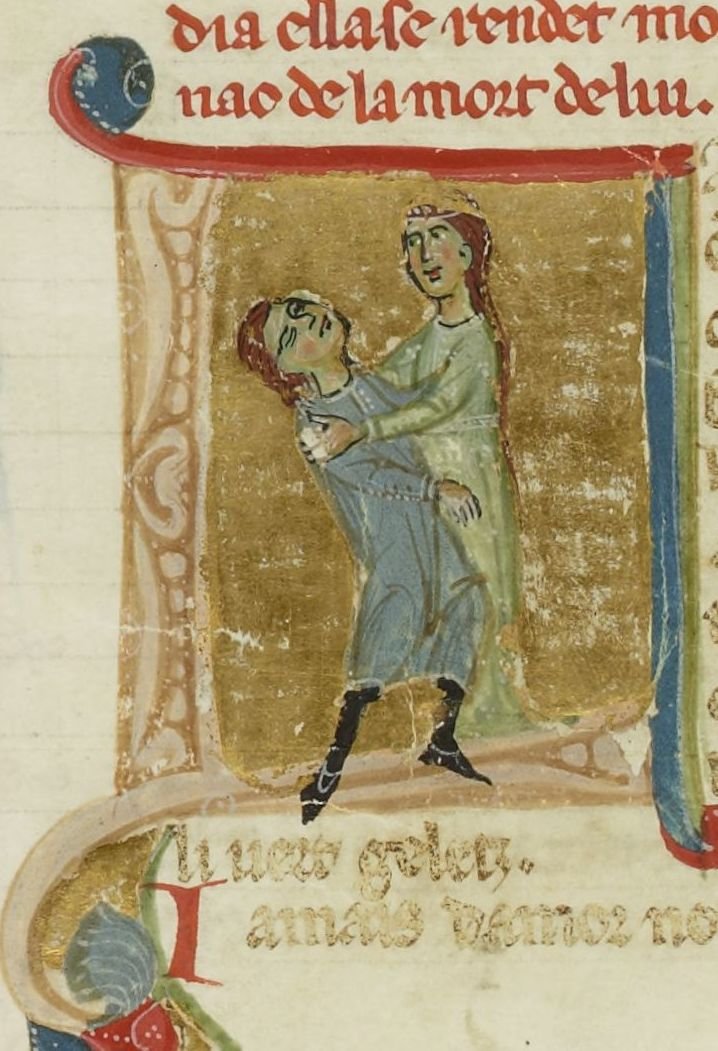 dia ella se rendet mo
nao de la mort de lui.
li uers gelez.
I
amais damor no